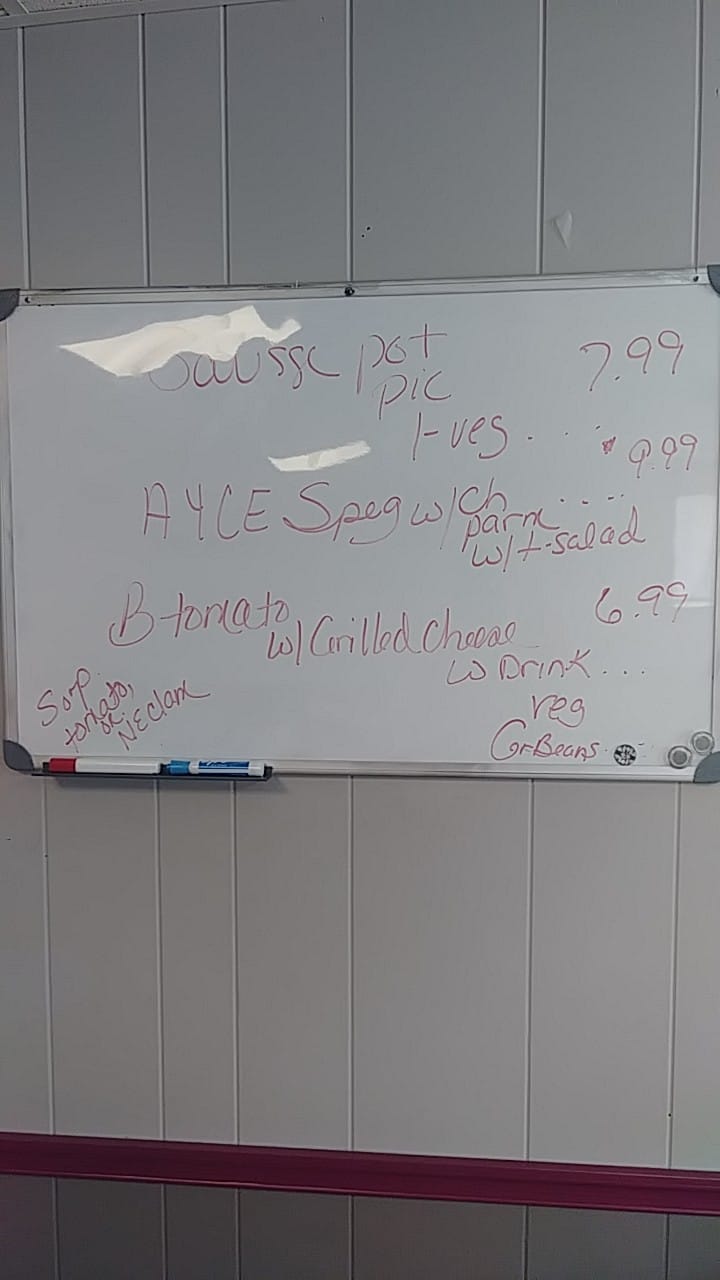 pot 7.99
pie
1-veg . . . . 9.99
AYCE Speg w/ch . . . .
parm
w/t-salad
B-tomato 6.99
w/Grilled Cheese
w Drink . . .
Soup
tomato,
or
NE clam
veg
Gr-Beans